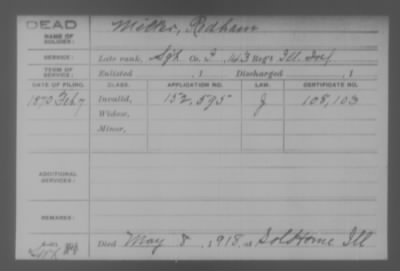 DEAD
NAME OF SOLDIER: Miller, Redham
SERVICE: Late rank, Sgt. Co. I, 143 Reg't Ill. Inf.
TERM OF SERVICE: Enlisted , 1 Discharged , 1
DATE OF FILING. CLASS. APPLICATION NO. LAW. CERTIFICATE NO.
1870 Feb 7 Invalid, 152,595 J 108,103
Widow,
Minor,
ADDITIONAL SERVICES:
REMARKS:
Died May 8, 1918, at Sol Home Ill